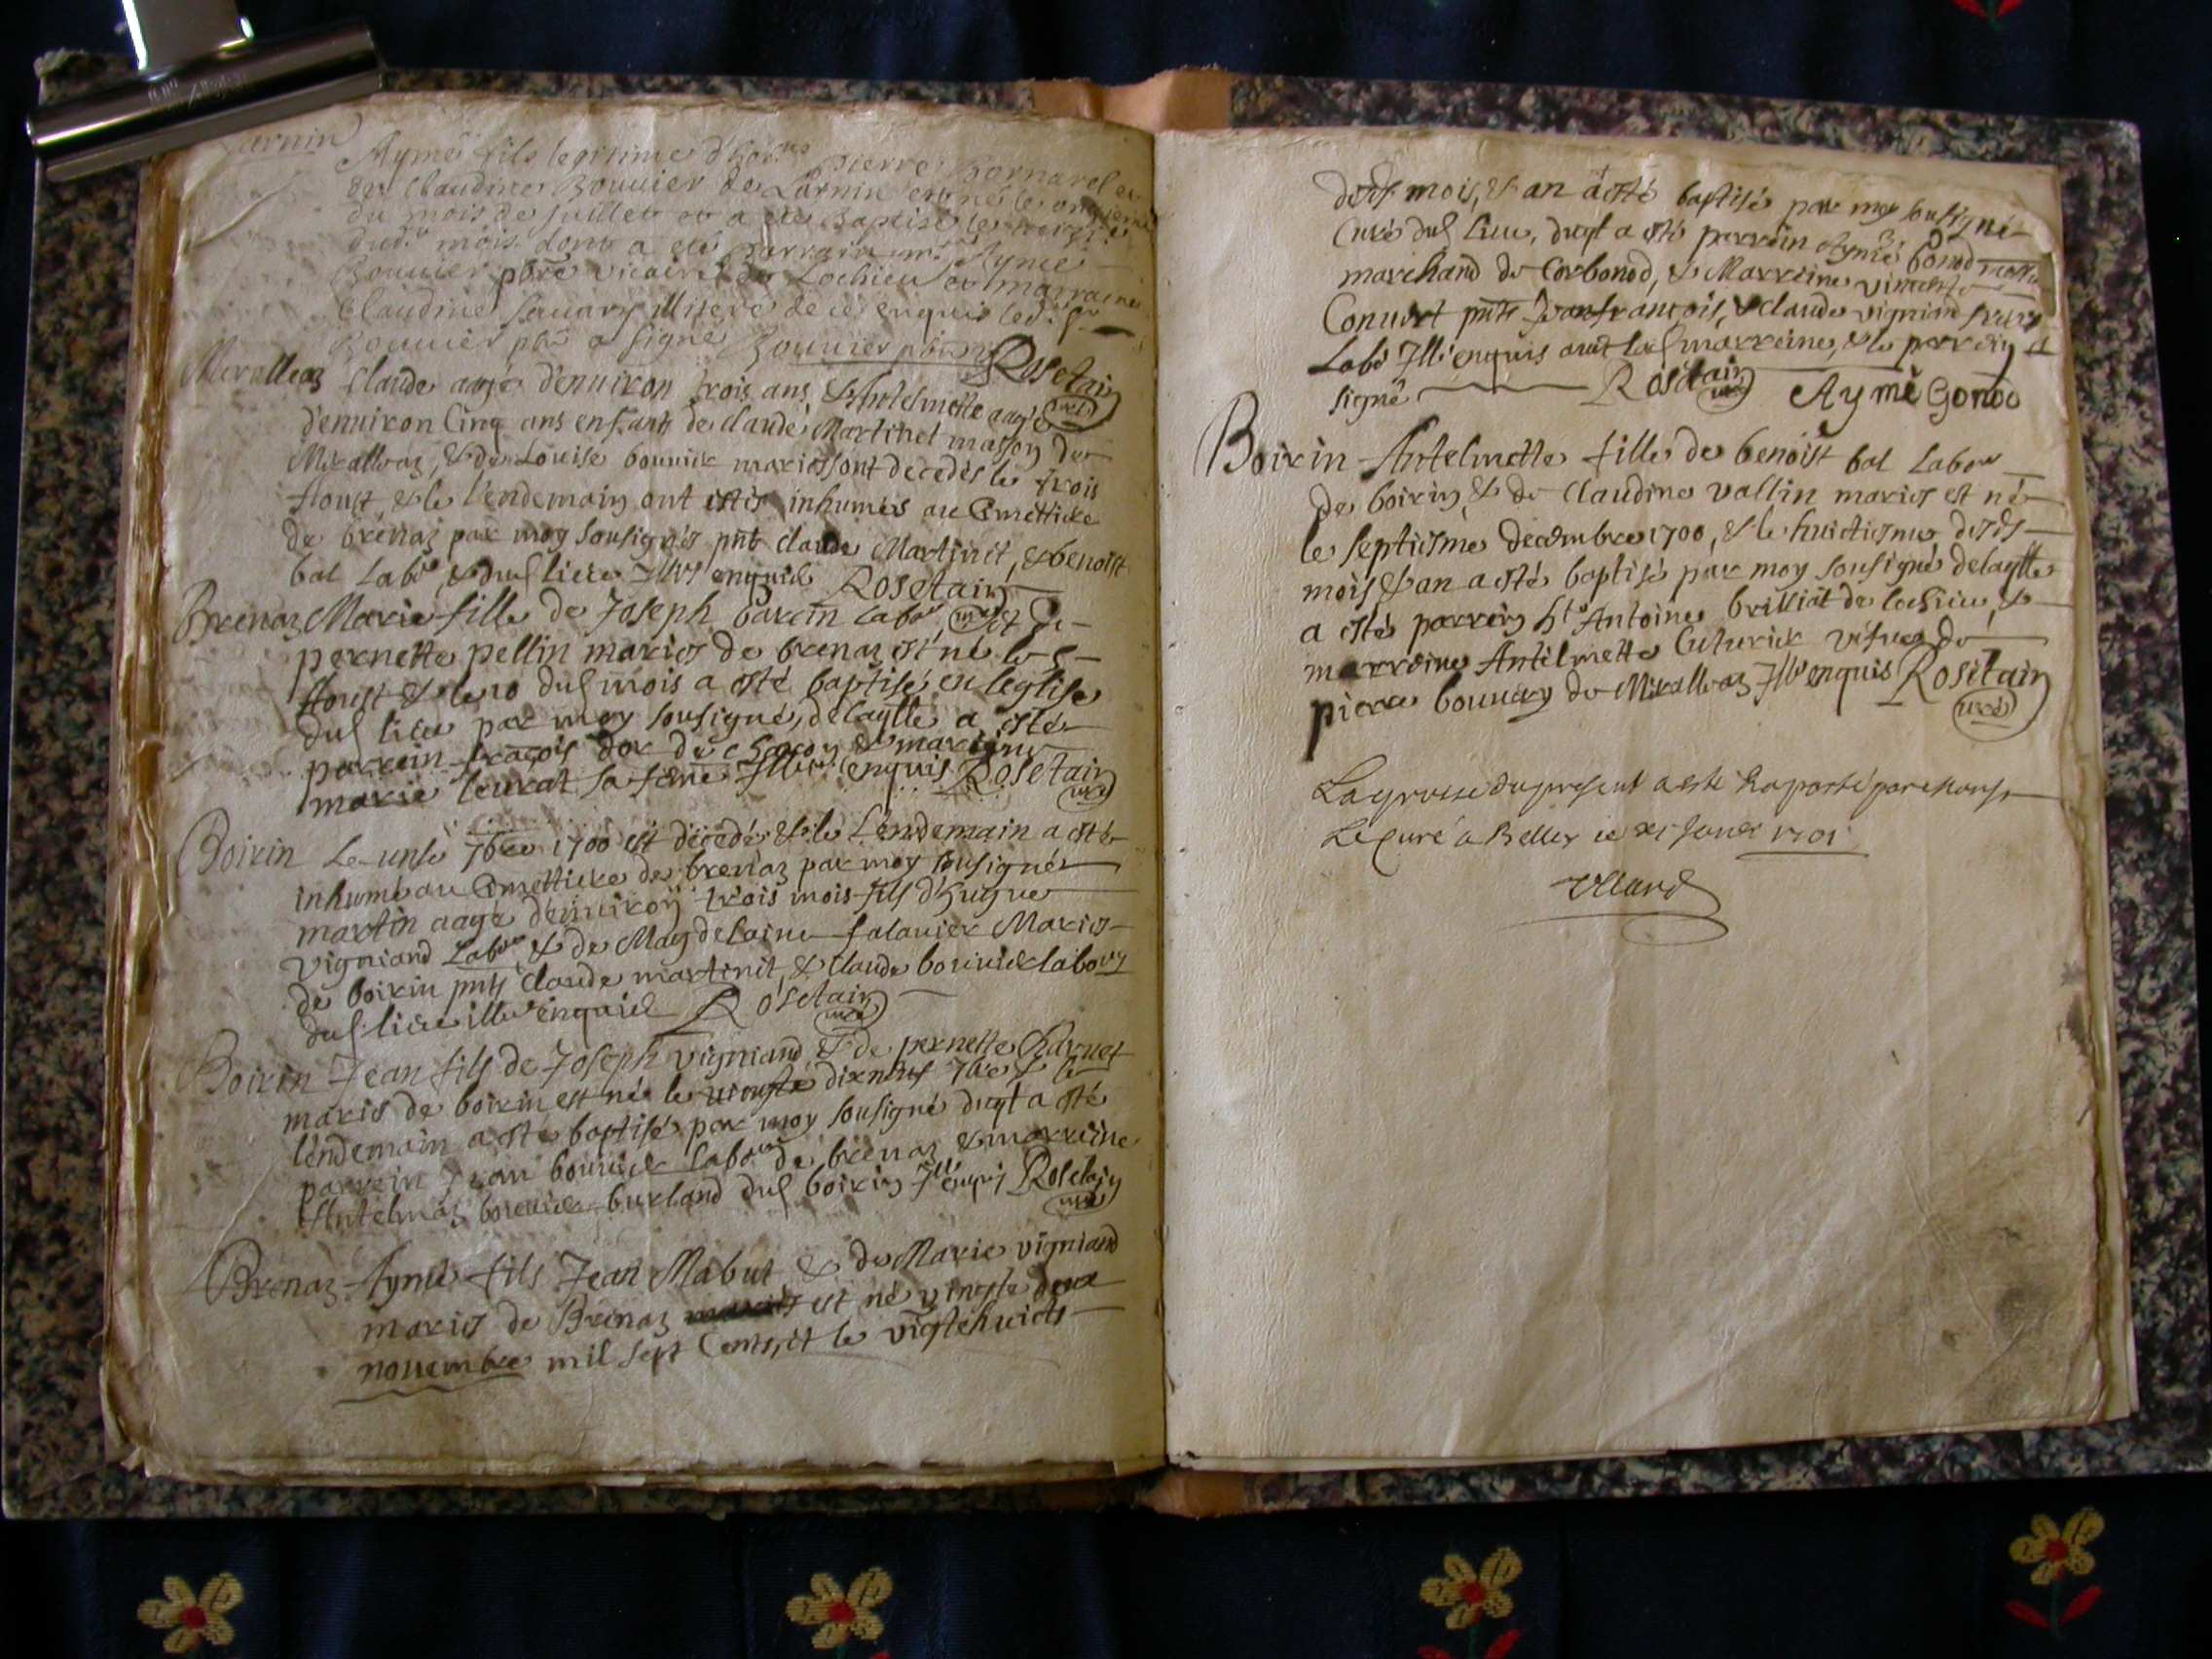 arnin
Aymé fils legitime d'hon.ble pierre Bernard et
de Claudine Bouuier de Larnin est né le onzieme
du mois de juillet et a ete Baptisé le
dud. mois dont a eté parrain m.re Ayme
Bouuier pbre vicaire de Lochieu et marraine
Claudine Sauary illiteré de ce enquis led. Sr
Bouuier pbre a signé Bouuier pbre Rosetain
Meralleaz Claude aagé d'enuiron trois ans & Anthelmette aagé curé
d'enuiron Cinq ans enfants de claude Martinet masson de
Miralleaz, & de Louise bouuier mariés sont decedés le trois
Aoust, & le l'endemain ont estés inhumés au Cimettiere
de brenaz par moy sousignés pnts claude Martinet, & benoist
bal Labr, & dud lieu Illrs enquis Rosetain
Brenaz Marie fille de Joseph Carrin Labr curé et de
pernette pellin mariés de brenaz est né le 8
Aoust & le 10 dud mois a esté baptisé en leglise
dud lieu par moy sousigné, delaqlle a esté
parrein fraçois dor de & marreine
marie leurat sa feme Illrs enquis Rosetain
curé
Boirin Le unse 7bre 1700 est decedé & le Lendemain a esté
inhumé au Cimettiere de brenaz par moy sousigné
martin aagé d'enuiron trois mois fils d'hugue
vigniand Labr & de Magdelaine falauier Mariés
de boirin pnts Claude martinit, & Claude bouuier labours
dud lieu illrs enquis Rosetain
curé
Boirin Jean fils de Joseph vigniand & de pernette Charuet
mariés de boirin est né le dixneuf 7bre & le
lendemain a esté baptisé par moy sousigné duqt a esté
parrein Jean bouuier Labour de brenaz & marreine
Antelmaz bouuier burland dud boirin Illrs enqis Rosetain
curé
Brenaz Aymé fils Jean Mabut & de Marie vigniand
mariés de Brenaz est né vingte deux
nouembre mil sept Cents, et le vigtehuict
desd mois, & an a esté baptisé par moy sousigné
Curé dud Lieu, duqt a esté parrein Aymé Gonod
marchand de Corbonod, & Marreine
Conuert pnts Jeanfrancois, & claude vigniand freres
Labr Illrs enquis aueclad marreine, & le parrein a
signé Rosetain curé Aymé Gonod
Boirin Antelmette fille de benoist bal Labour
de boirin, & de Claudine vallin mariés est né
le septiesme decembre 1700, & le huictiesme desds
mois & an a esté baptisé par moy sousigné delaqlle
a esté parrein ht Antoine brilliat de lochieu, &
marreine Antelmette Cuturier vefue de
pierre bouuery de Miralleaz Illrs enquis Rosetain
curé
La grosse du present a esté Raporté par Mons.r
Le Curé a Belley ce xi Januier 1701